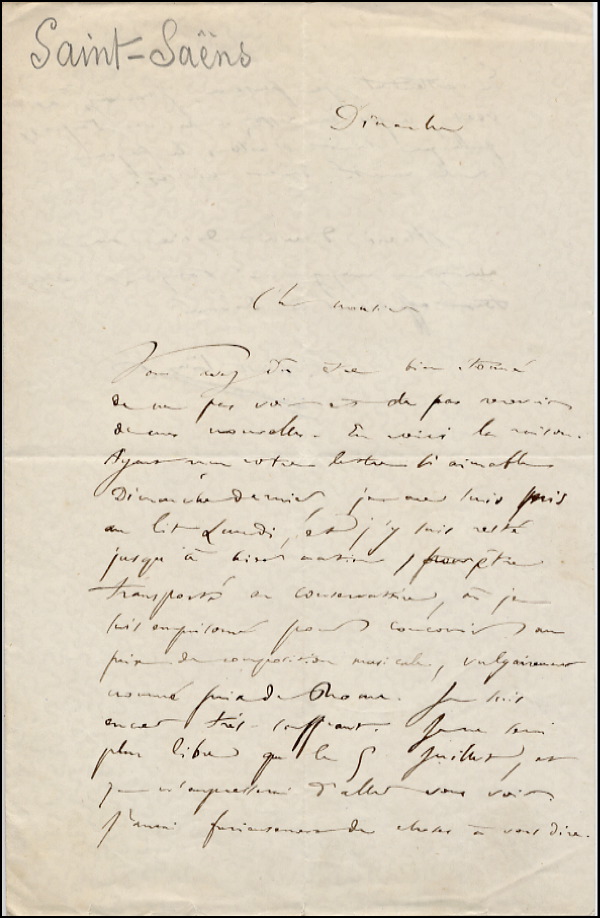 Saint-Saëns
Dimanche
Cher monsieur
Vous avez dû être bien étonné
de ne pas voir et de pas recevoir
de mes nouvelles. En voici la raison.
Ayant reçu votre lettre si aimable
Dimanche dernier, je me suis mis
au lit Lundi, et j'y suis resté
jusqu'à hier matin, pour être
transporté au conservatoire, où je
suis emprisonné pour concourir au
prix de composition musicale, vulgairement
nommé prix de Rome. Je suis
encor très-souffrant. Je ne serai
plus libre que le 5 Juillet, et
je m'empresserai d'aller vous voir.
J'aurai furieusement de choses à vous dire.